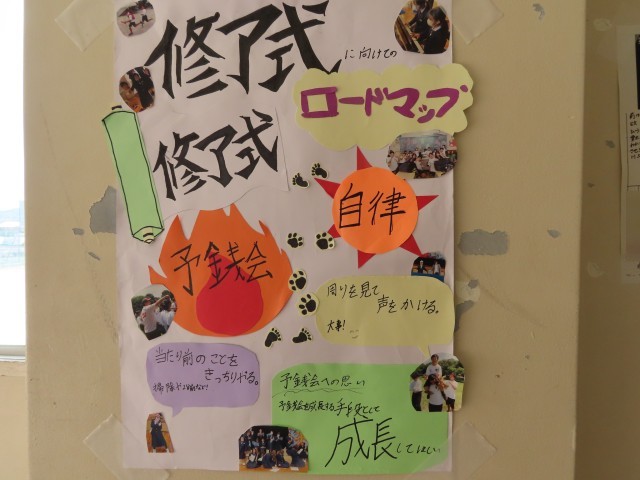 修了式
に向けての
ロードマップ
修了式
自律
予銭会
周りを見て
声をかける。
大事!
当たり前のことを
きっちりやる。
予銭会への思い
予銭会を成長する手段として
成長してほしい